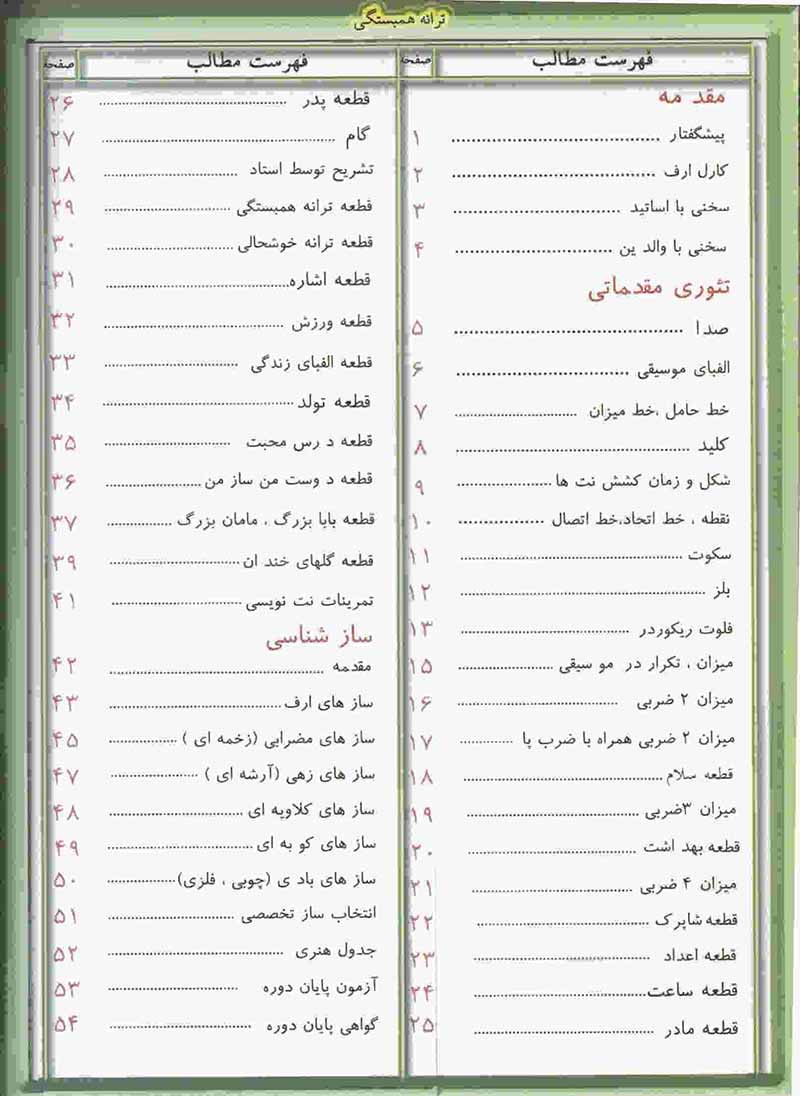 ترانه همبستگی
فهرست مطالب صفحه
مقد مه
پیشگفتار ۱
کارل ارف ۲
سخنی با اساتید ۳
سخنی با والد ین ۴
تئوری مقدماتی
صدا ۵
الفبای موسیقی ۶
خط حامل ،خط میزان ۷
کلید ۸
شکل و زمان کشش نت ها ۹
نقطه ، خط اتحاد،خط اتصال ۱۰
سکوت ۱۱
بلز ۱۲
فلوت ریکوردر ۱۳
میزان ، تکرار در مو سیقی ۱۵
میزان ۲ ضربی ۱۶
میزان ۲ ضربی همراه با ضرب پا ۱۷
قطعه سلام ۱۸
میزان ۳ضربی ۱۹
قطعه بهد اشت ۲۰
میزان ۴ ضربی ۲۱
قطعه شاپرک ۲۲
قطعه اعداد ۲۳
قطعه ساعت ۲۴
قطعه مادر ۲۵
فهرست مطالب صفحه
قطعه پدر ۲۶
گام ۲۷
تشریح توسط استاد ۲۸
قطعه ترانه همبستگی ۲۹
قطعه ترانه خوشحالی ۳۰
قطعه اشاره ۳۱
قطعه ورزش ۳۲
قطعه الفبای زندگی ۳۳
قطعه تولد ۳۴
قطعه د رس محبت ۳۵
قطعه د وست من ساز من ۳۶
قطعه بابا بزرگ ، مامان بزرگ ۳۷
قطعه گلهای خند ان ۳۹
تمرینات نت نویسی ۴۱
ساز شناسی
مقدمه ۴۲
ساز های ارف ۴۳
ساز های مضرابی (زخمه ای ) ۴۵
ساز های زهی (آرشه ای ) ۴۷
ساز های کلاویه ای ۴۸
ساز های کو به ای ۴۹
ساز های باد ی (چوبی ، فلزی) ۵۰
انتخاب ساز تخصصی ۵۱
جدول هنری ۵۲
آزمون پایان دوره ۵۳
گواهی پایان دوره ۵۴